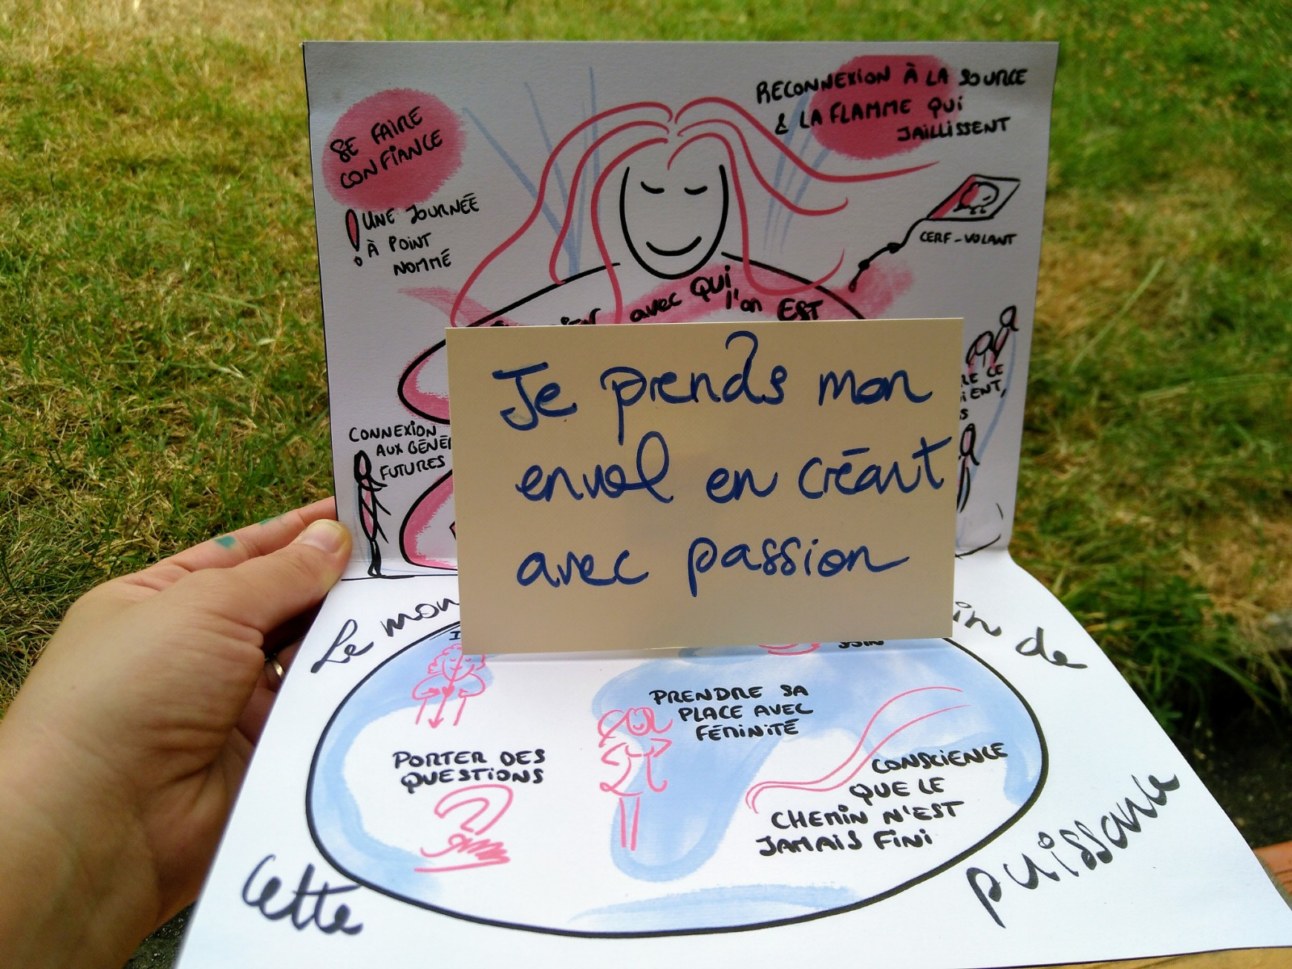 SE FAIRE
CONFIANCE
! UNE JOURNÉE
À POINT
NOMMÉ
RECONNEXION À LA SOURCE
& LA FLAMME QUI
JAILLISSENT
CERF-VOLANT
avec QUI
l'on EST
CONNEXION
AUX GÉNÉ
FUTURES
Je prends mon
envol en créant
avec passion
Le mon
de
PRENDRE SA
PLACE AVEC
FÉMINITÉ
PORTER DES
QUESTIONS
CONSCIENCE
QUE LE
CHEMIN N'EST
JAMAIS FINI
Cette
puissance